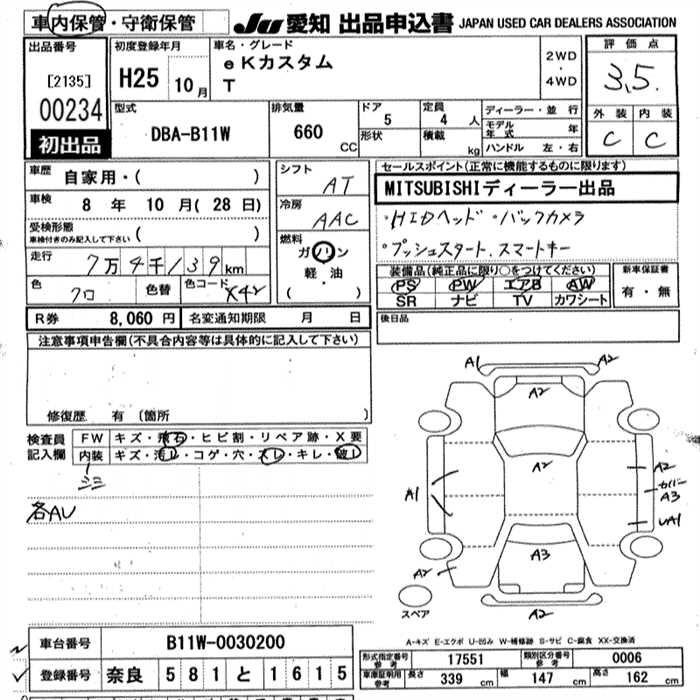 車内保管・守衛保管
JU 愛知 出品申込書 JAPAN USED CAR DEALERS ASSOCIATION
出品番号
[2135]
00234
初出品
初度登録年月
H25 10月
車名・グレード
eKカスタム
T
2WD
・
4WD
評価点
3.5
型式
DBA-B11W
排気量
660 CC
ドア
5
形状
定員
4 人
積載 kg
ディーラー・並行
モデル年式 年
ハンドル 左・右
外装 内装
C C
車歴 自家用・( )
車検 8 年 10 月(28 日)
受検形態
車検付きのみ記入して下さい ( )
走行 7万4千139km
色 クロ 色替 色コード X42
シフト
AT
冷房
AAC
燃料
ガソリン
軽・油
( ・ )
セールスポイント(正常に機能するものに限ります)
MITSUBISHIディーラー出品
・HIDヘッド ・バックカメラ
・プッシュスタート、スマートキー
装備品(純正品に限り○をつけてください)
PS PW エアB AW
SR ナビ TV カワシート
新車保証書
有・無
R券 8,060円 名変通知期限 月 日
後日品
注意事項申告欄(不具合内容等は具体的に記入して下さい)
修復歴 有 (箇所 )
検査員記入欄
FW キズ・飛石・ヒビ割・リペア跡・X要
内装 キズ・汚レ・コゲ・穴・スレ・キレ・破レ
シミ
各AU
A1 A2
A2
A2
A2
カバー
A3
A1
UA1
A3
A2
A2
スペア
A-キズ E-エクボ U-凹み W-補修跡 S-サビ C-腐食 XX-交換済
車台番号 B11W-0030200
登録番号 奈良 581 と 1615
形式指定番号 参考 17551 類別区分番号 参考 0006
車庫証明用 参考 長さ 339 cm 幅 147 cm 高さ 162 cm